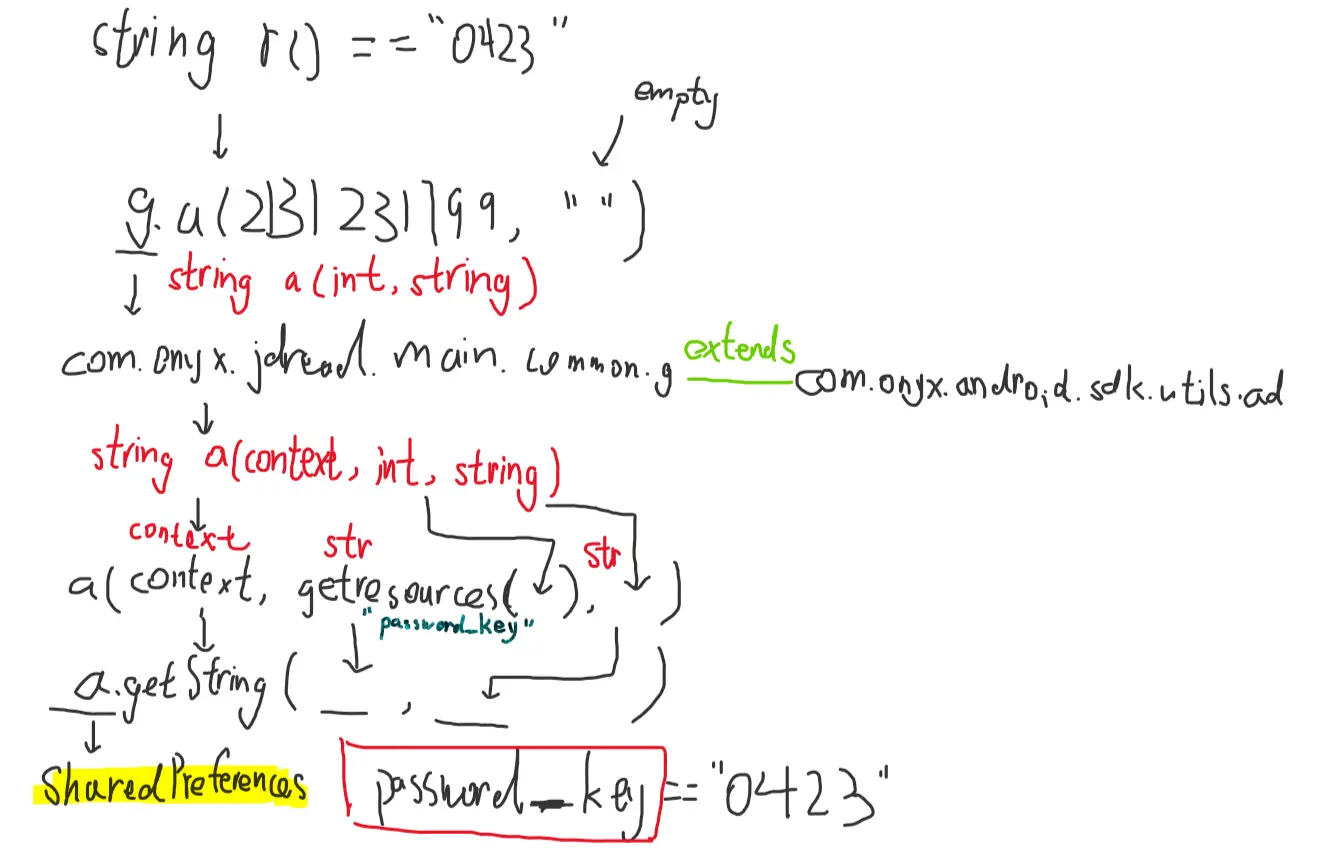 string r() == "0423"
empty
g.a(2131231799, "")
string a(int, string)
com.onyx.jdread.main.common.g extends com.onyx.android.sdk.utils.ad
string a(context, int, string)
context str str
a(context, getresources( ), )
"password_key"
a.getString( __ , __ )
SharedPreferences password_key == "0423"